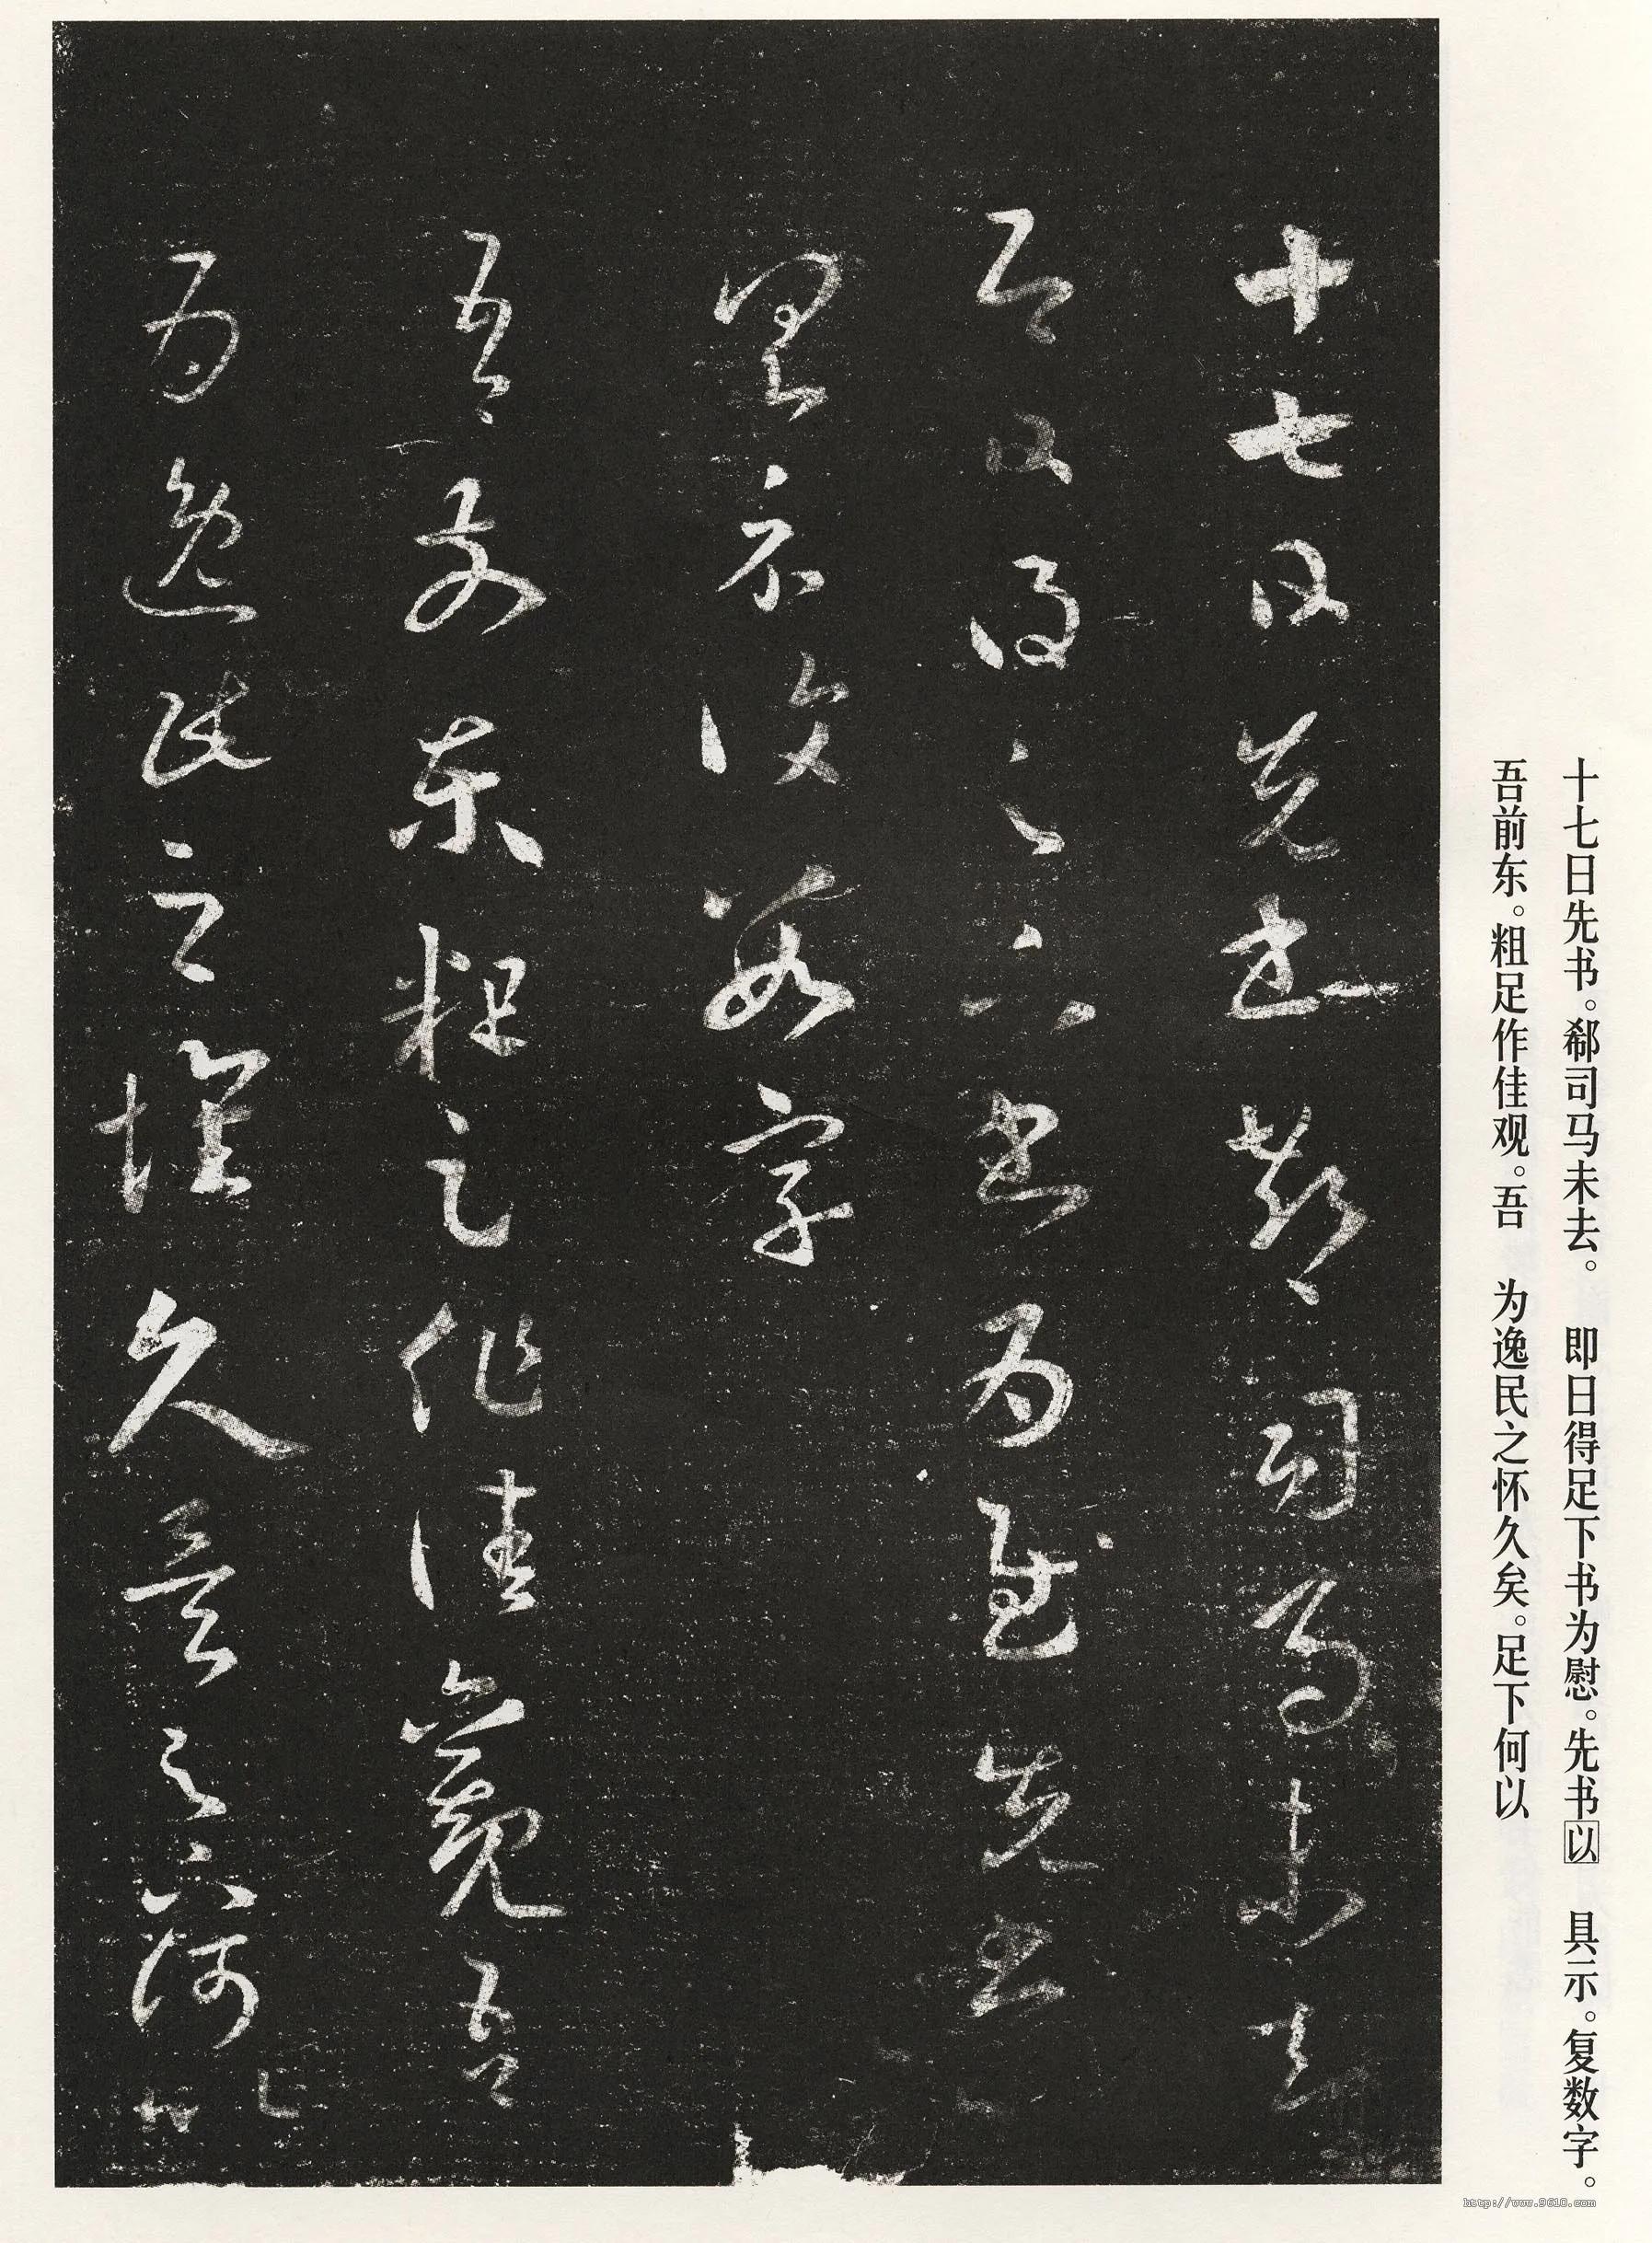 十七日先书。郗司马未去。 即日得足下书为慰。先书以 具示。复数字。
吾前东。粗足作佳观。吾 为逸民之怀久矣。足下何以
十七日先書郗司馬未去
即日得足下書為慰先書以
具示復數字
吾前東粗足作佳觀吾
為逸民之懷久矣足下何以
http://www.9610.com